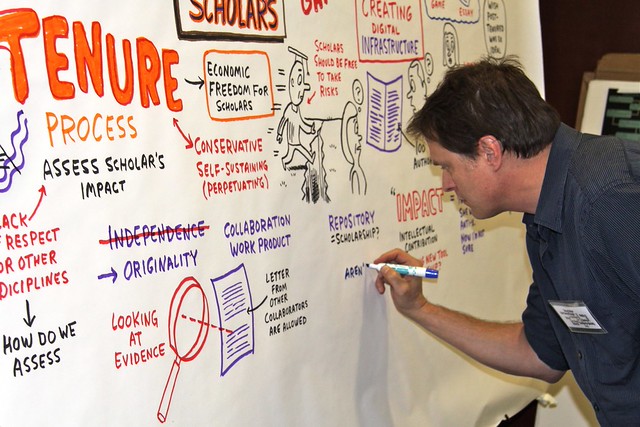 SCHOLARS
TENURE
PROCESS
ASSESS SCHOLAR'S
IMPACT
ECONOMIC
FREEDOM FOR
SCHOLARS
CONSERVATIVE
SELF-SUSTAINING
(PERPETUATING)
SCHOLARS
SHOULD BE FREE
TO TAKE
RISKS
CREATING
DIGITAL
INFRASTRUCTURE
GAME
RESPECT
OR OTHER
DICIPLINES
HOW DO WE
ASSESS
INDEPENDENCE
ORIGINALITY
LOOKING
AT
EVIDENCE
COLLABORATION
WORK PRODUCT
LETTER
FROM
OTHER
COLLABORATORS
ARE ALLOWED
REPOSITORY
=SCHOLARSHIP?
AREN'
"IMPACT
INTELLECTUAL
CONTRIBUTION
NEW TOOL